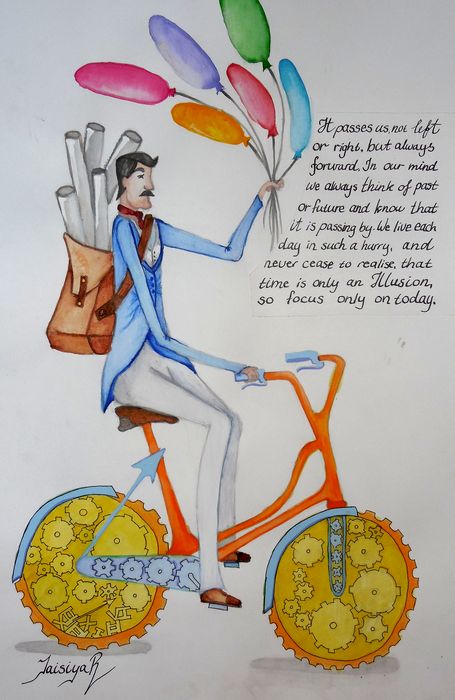 It passes us, not left
or right, but always
forward. In our mind
we always think of past
or future and know that
it is passing by. We live each
day in such a hurry, and
never cease to realise, that
time is only an Illusion,
so focus only on today.
TaisiyaR